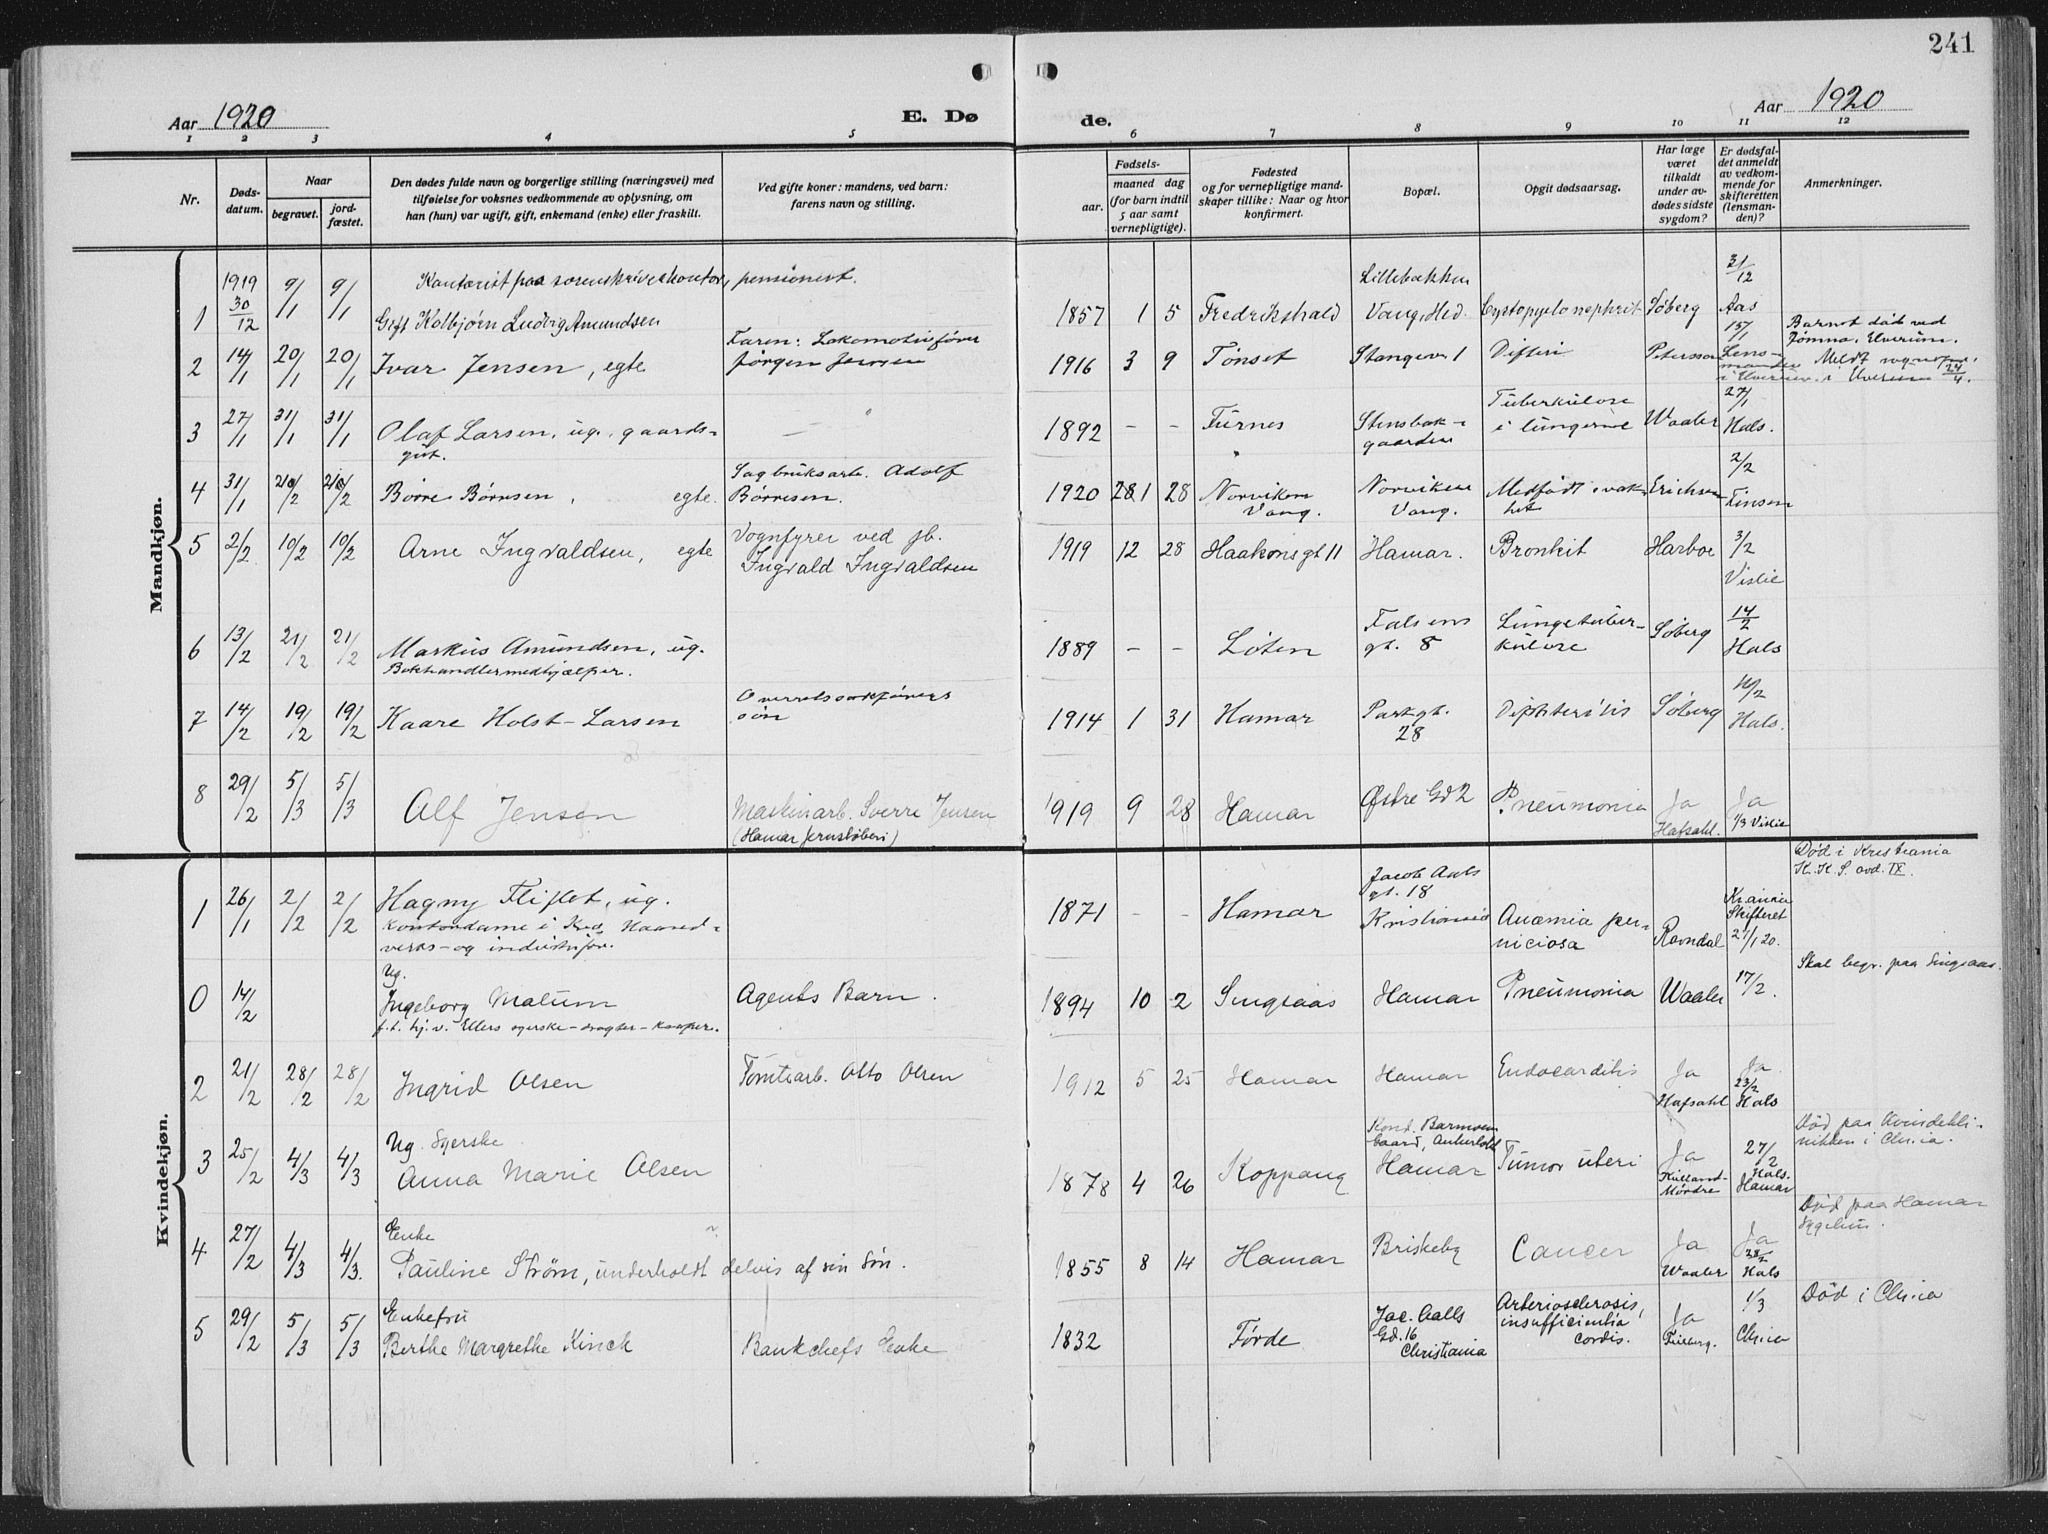 241
Aar 1920
E. Dø
de.
Aar 1920
1 2 3 4 5 6 7 8 9 10 11 12
Nr.
Døds-
datum.
Naar
begravet.
jord-
fæstet.
Den dødes fulde navn og borgerlige stilling (næringsvei) med
tilføielse for voksnes vedkommende av oplysning, om
han (hun) var ugift, gift, enkemand (enke) eller fraskilt.
Ved gifte koner: mandens, ved barn:
farens navn og stilling.
Fødsels-
aar.
maaned dag
(for barn indtil
5 aar samt
vernepligtige).
Fødested
og for vernepligtige mand-
skaper tillike: Naar og hvor
konfirmert.
Bopæl.
Opgit dødsaarsag.
Har læge
været
tilkaldt
under av-
dødes sidste
sygdom?
Er dødsfal-
det anmeldt
av vedkom-
mende for
skifteretten
(lensman-
den)?
Anmerkninger.
Mandkjøn.
1 1919 30/12 9/1 9/1 Kontorist paa sorenskriverkontor, pensionert.
Gift Kolbjørn Ludvig Amundsen
1857 1 5 Fredrikshald Lillebakken
Vang, Hed. Cystopyelonephrit Søberg 31/12
Aas
2 14/1 20/1 20/1 Ivar Jensen, egte
Faren: Lokomotivfører
Jørgen Jensen
1916 3 9 Tønset Stangevn 1 Difteri Peterssen 15/1
Lens-
manden
i Elverum
Barnet død ved
Jømna, Elverum.
Meldt sogneprest
i Elverum 24/4.
3 27/1 31/1 31/1 Olaf Larsen, ug., gaards-
gut.
1892 - - Furnes Stensbak-
gaarden Tuberkulose
i lungerne Waaler 27/1
Hals.
4 31/1 Børre Børresen, egte.
Sagbruksarb. Adolf
Børresen.
1920 1 28 Norviken
Vang. Norviken
Vang. Medfødt svak-
het Erichsen 2/2
Finsen
5 2/2 10/2 10/2 Arne Ingvaldsen, egte
Vognfyrer ved jb.
Ingvald Ingvaldsen
1919 12 28 Haakonsgt 11 Hamar. Bronkit Harboe 3/2
Vislie
6 13/2 21/2 21/2 Markus Amundsen, ug.
Bokhandlermedhjælper.
1889 - - Løten Falsens
gt. 8 Lungetuber-
kulose Søberg 14/2
Hals
7 14/2 19/2 19/2 Kaare Holst-Larsen
Overretssakførers
søn
1914 1 31 Hamar Parkgt.
28 Diphteritis Søberg 16/2
Hals.
8 29/2 5/3 5/3 Alf Jensen
Maskinarb. Sverre Jensen
(Hamar Jernstøberi)
1919 9 28 Hamar Østre Gd 2 Pneumonia Ja
Hafsahl. Ja
1/3 Vislie
Kvindekjøn.
1 26/1 2/2 2/2 Hagny Fliflet, ug.
Kontordame i Haand-
verks- og industrifor.
1871 - - Hamar Jacob Aals
gt. 18
Kristiania Anæmia per-
niciosa Ravndal Kr.ania
Skifteret
27/1 20.
Død i Kristiania
K. K. S. avd. IX.
0 14/2 Ug.
Ingeborg Malum
f.t. hj. v. Ellers syerske - dragter - kaaper.
Agents Barn.
1894 10 2 Singsaas Hamar Pneumonia Waaler 17/2.
Skal begr. paa Singsaas.
2 21/2 28/2 28/2 Ingrid Olsen
Tomtearb. Otto Olsen
1912 5 25 Hamar Hamar Endocarditis Ja
Hafsahl Ja.
23/2
Hals
3 25/2 4/3 4/3 Ug. Syerske
Anna Marie Olsen
1878 4 26 Koppang Hamar Tumor uteri Ja
Mørdre 27/2
Hals.
Hamar
Død paa Kvindekli-
nikken i Chr.ia.
4 27/2 4/3 4/3. Enke
Pauline Strøm, underholdt delvis af sin Søn.
1855 8 14 Hamar Briskeby Cancer Ja
Waaler Ja
28/2
Hals
Død paa Hamar
Sygehus.
5 29/2 5/3 5/3 Enkefru
Berthe Margrethe Kinck
Bankchefs Enke
1832 Førde Jac. Aalls
Gd. 16
Christiania Arteriosclerosis,
insufficientia
cordis. Ja 1/3
Chr.ia
Død i Chr.ia